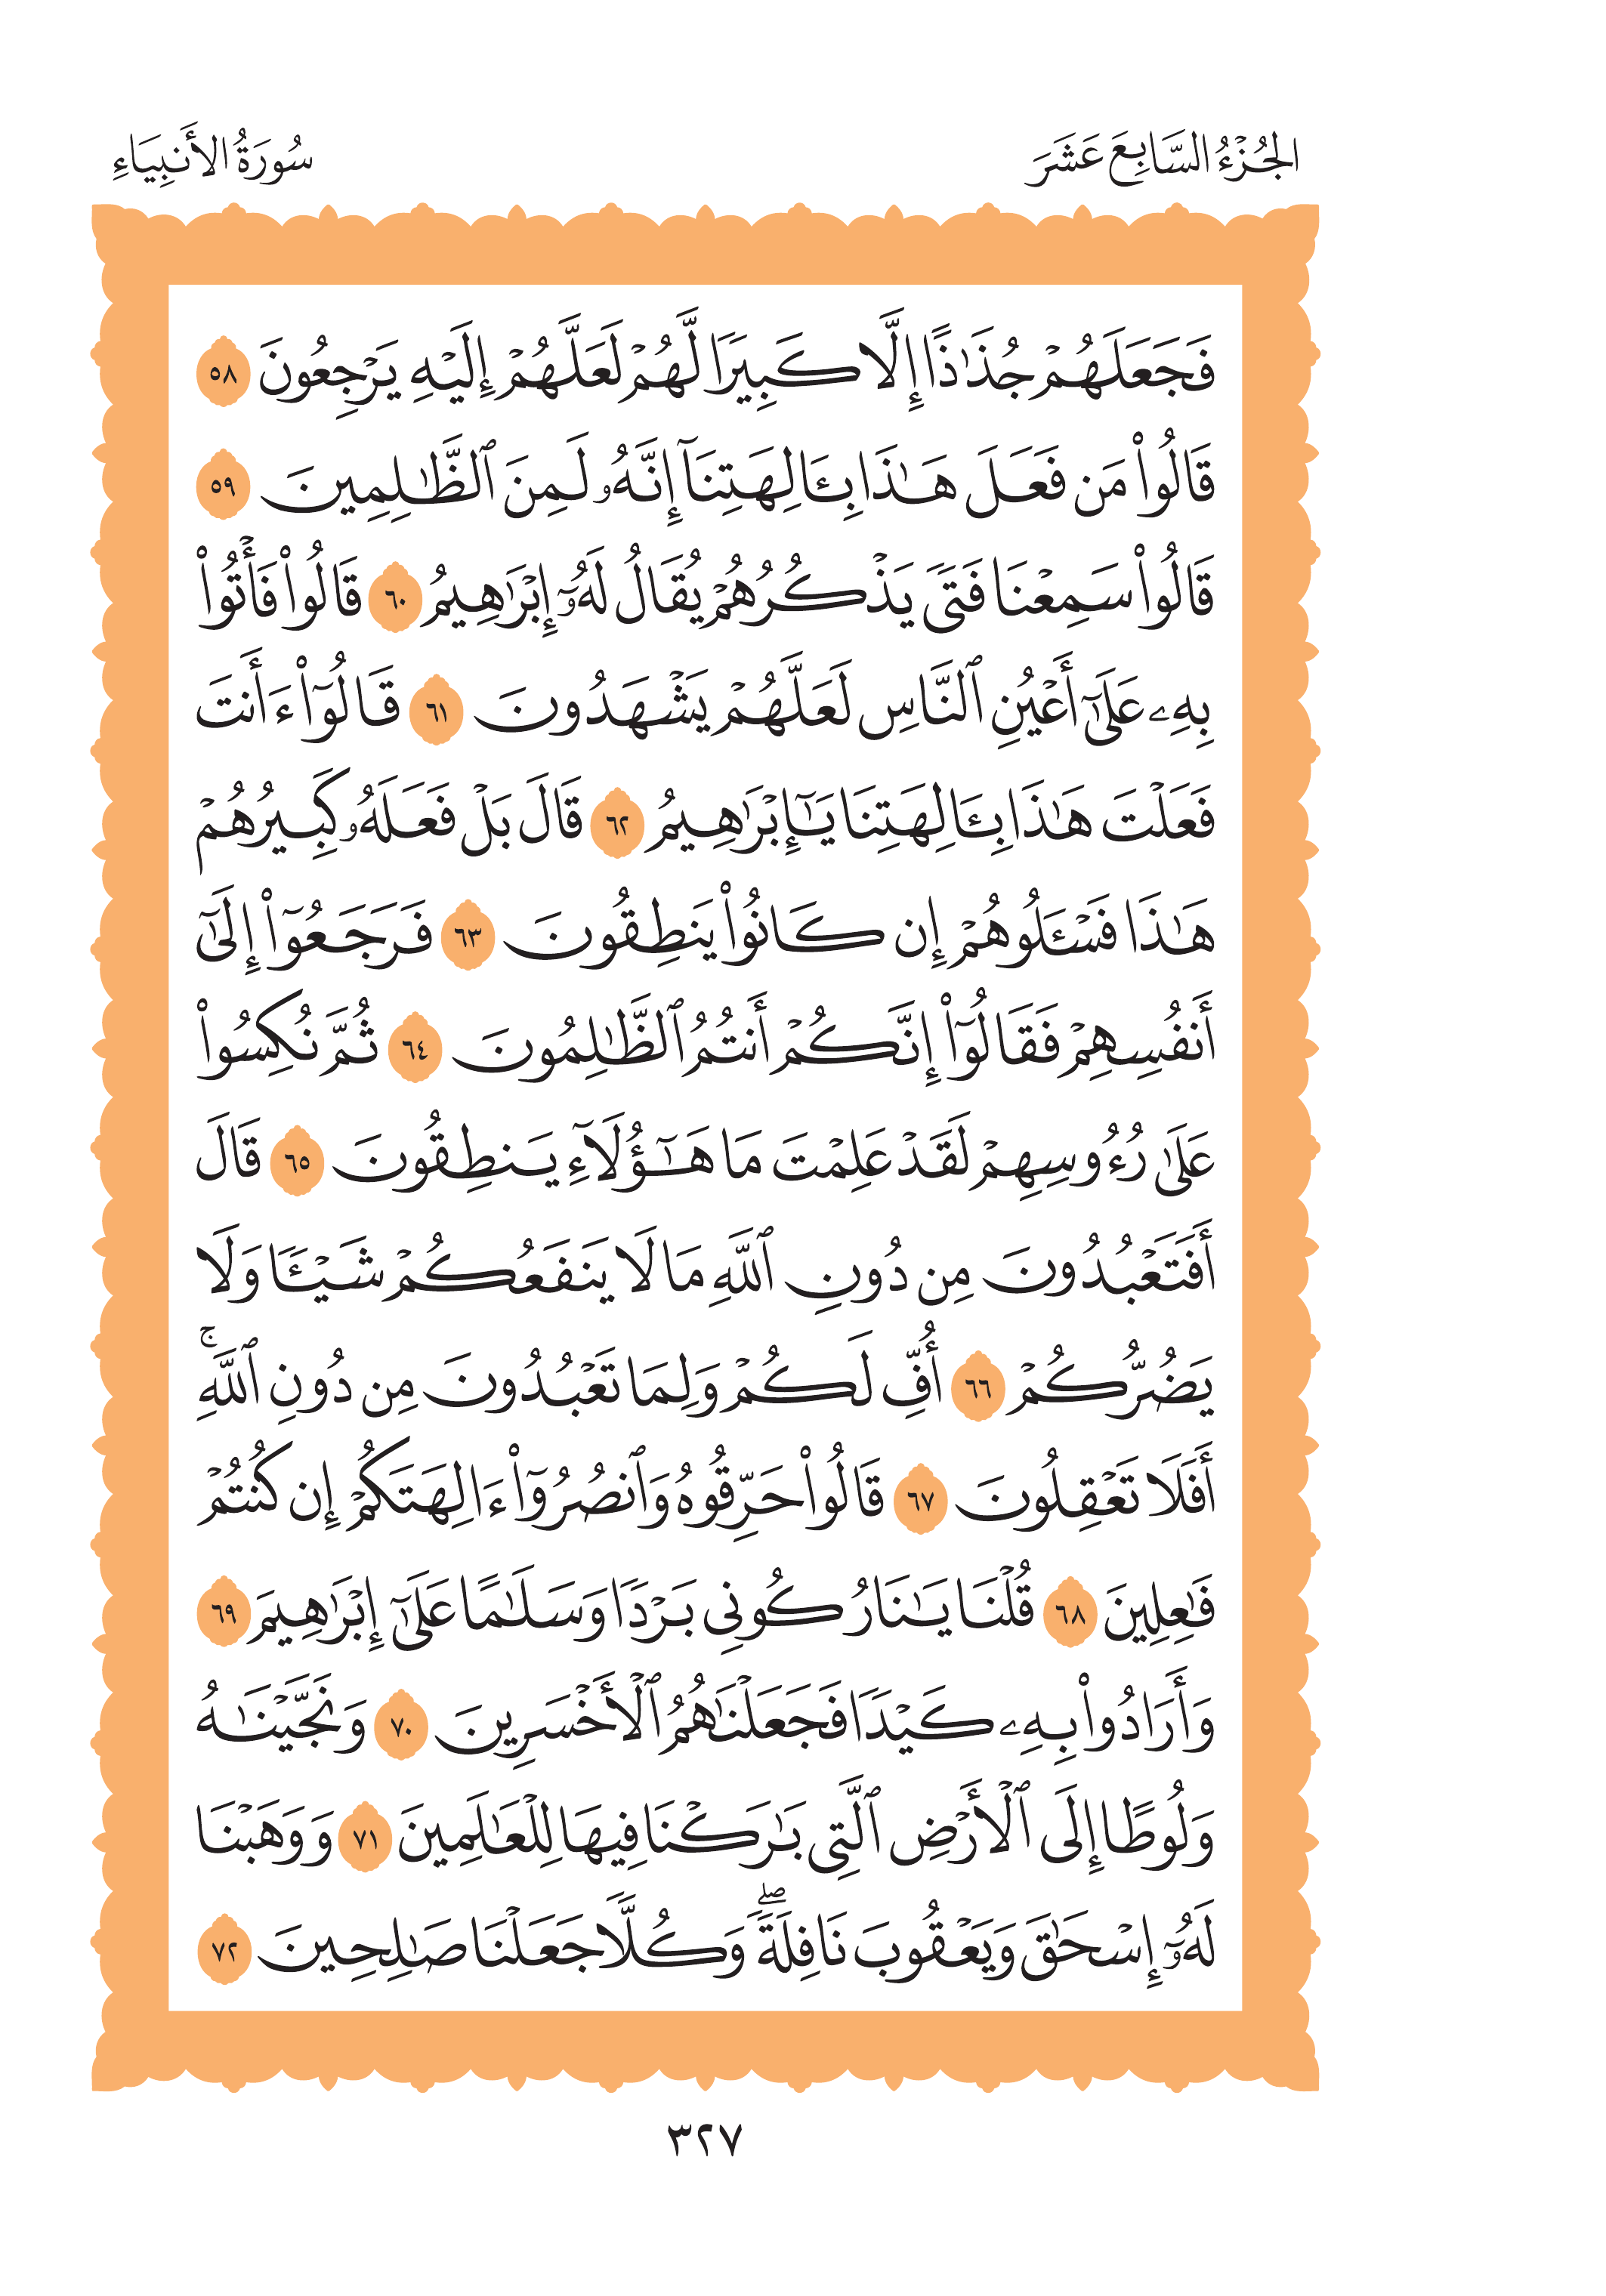 الجُزْءُ السَّابِعَ عَشَرَ
سُورَةُ الأَنبِيَاءِ
فَجَعَلَهُمْ جُذَٰذًا إِلَّا كَبِيرًا لَّهُمْ لَعَلَّهُمْ إِلَيْهِ يَرْجِعُونَ ٥٨
قَالُوا۟ مَن فَعَلَ هَـٰذَا بِـَٔالِهَتِنَآ إِنَّهُۥ لَمِنَ ٱلظَّـٰلِمِينَ ٥٩
قَالُوا۟ سَمِعْنَا فَتًى يَذْكُرُهُمْ يُقَالُ لَهُۥٓ إِبْرَٰهِيمُ ٦٠ قَالُوا۟ فَأْتُوا۟
بِهِۦ عَلَىٰٓ أَعْيُنِ ٱلنَّاسِ لَعَلَّهُمْ يَشْهَدُونَ ٦١ قَالُوٓا۟ ءَأَنتَ
فَعَلْتَ هَـٰذَا بِـَٔالِهَتِنَا يَـٰٓإِبْرَٰهِيمُ ٦٢ قَالَ بَلْ فَعَلَهُۥ كَبِيرُهُمْ
هَـٰذَا فَسْـَٔلُوهُمْ إِن كَانُوا۟ يَنطِقُونَ ٦٣ فَرَجَعُوٓا۟ إِلَىٰٓ
أَنفُسِهِمْ فَقَالُوٓا۟ إِنَّكُمْ أَنتُمُ ٱلظَّـٰلِمُونَ ٦٤ ثُمَّ نُكِسُوا۟
عَلَىٰ رُءُوسِهِمْ لَقَدْ عَلِمْتَ مَا هَـٰٓؤُلَآءِ يَنطِقُونَ ٦٥ قَالَ
أَفَتَعْبُدُونَ مِن دُونِ ٱللَّهِ مَا لَا يَنفَعُكُمْ شَيْـًٔا وَلَا
يَضُرُّكُمْ ٦٦ أُفٍّ لَّكُمْ وَلِمَا تَعْبُدُونَ مِن دُونِ ٱللَّهِ ۚ
أَفَلَا تَعْقِلُونَ ٦٧ قَالُوا۟ حَرِّقُوهُ وَٱنصُرُوٓا۟ ءَالِهَتَكُمْ إِن كُنتُمْ
فَـٰعِلِينَ ٦٨ قُلْنَا يَـٰنَارُ كُونِى بَرْدًا وَسَلَـٰمًا عَلَىٰٓ إِبْرَٰهِيمَ ٦٩
وَأَرَادُوا۟ بِهِۦ كَيْدًا فَجَعَلْنَـٰهُمُ ٱلْأَخْسَرِينَ ٧٠ وَنَجَّيْنَـٰهُ
وَلُوطًا إِلَى ٱلْأَرْضِ ٱلَّتِى بَـٰرَكْنَا فِيهَا لِلْعَـٰلَمِينَ ٧١ وَوَهَبْنَا
لَهُۥٓ إِسْحَـٰقَ وَيَعْقُوبَ نَافِلَةً ۖ وَكُلًّا جَعَلْنَا صَـٰلِحِينَ ٧٢
٣٢٧